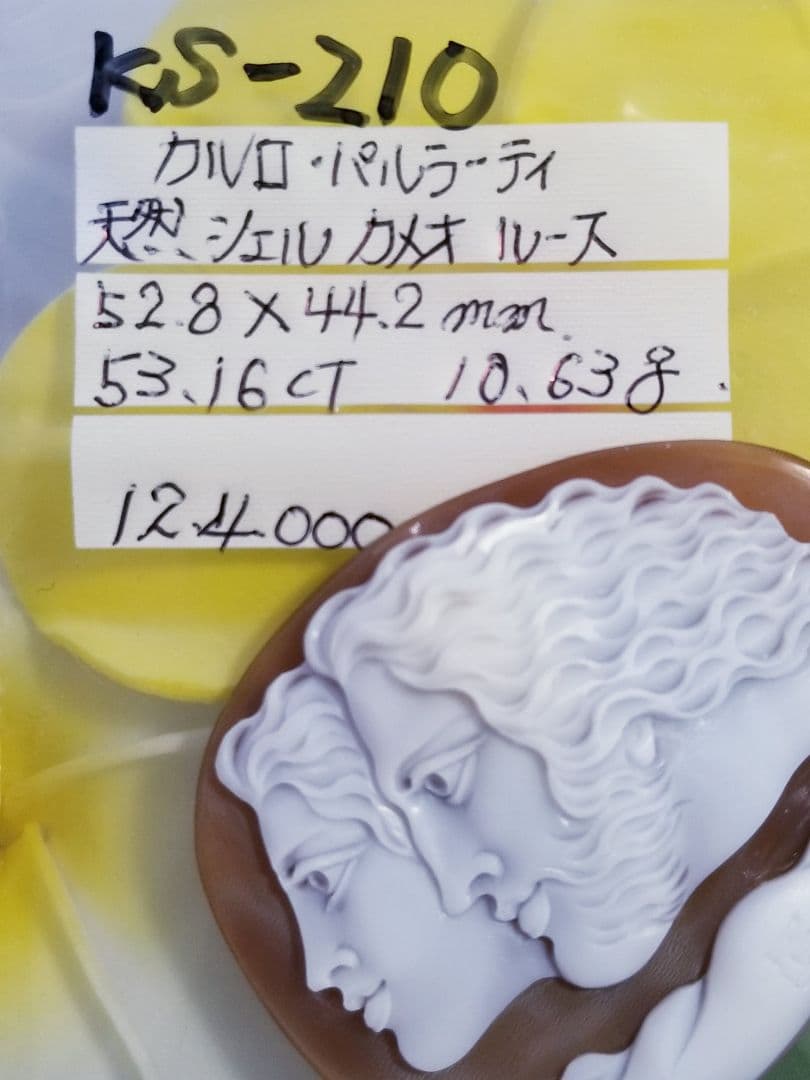 KS-210
カルロ・パルラーティ
天然 シェル カメオ ルース
52.8×44.2mm
53.16CT 10.63g.
124000